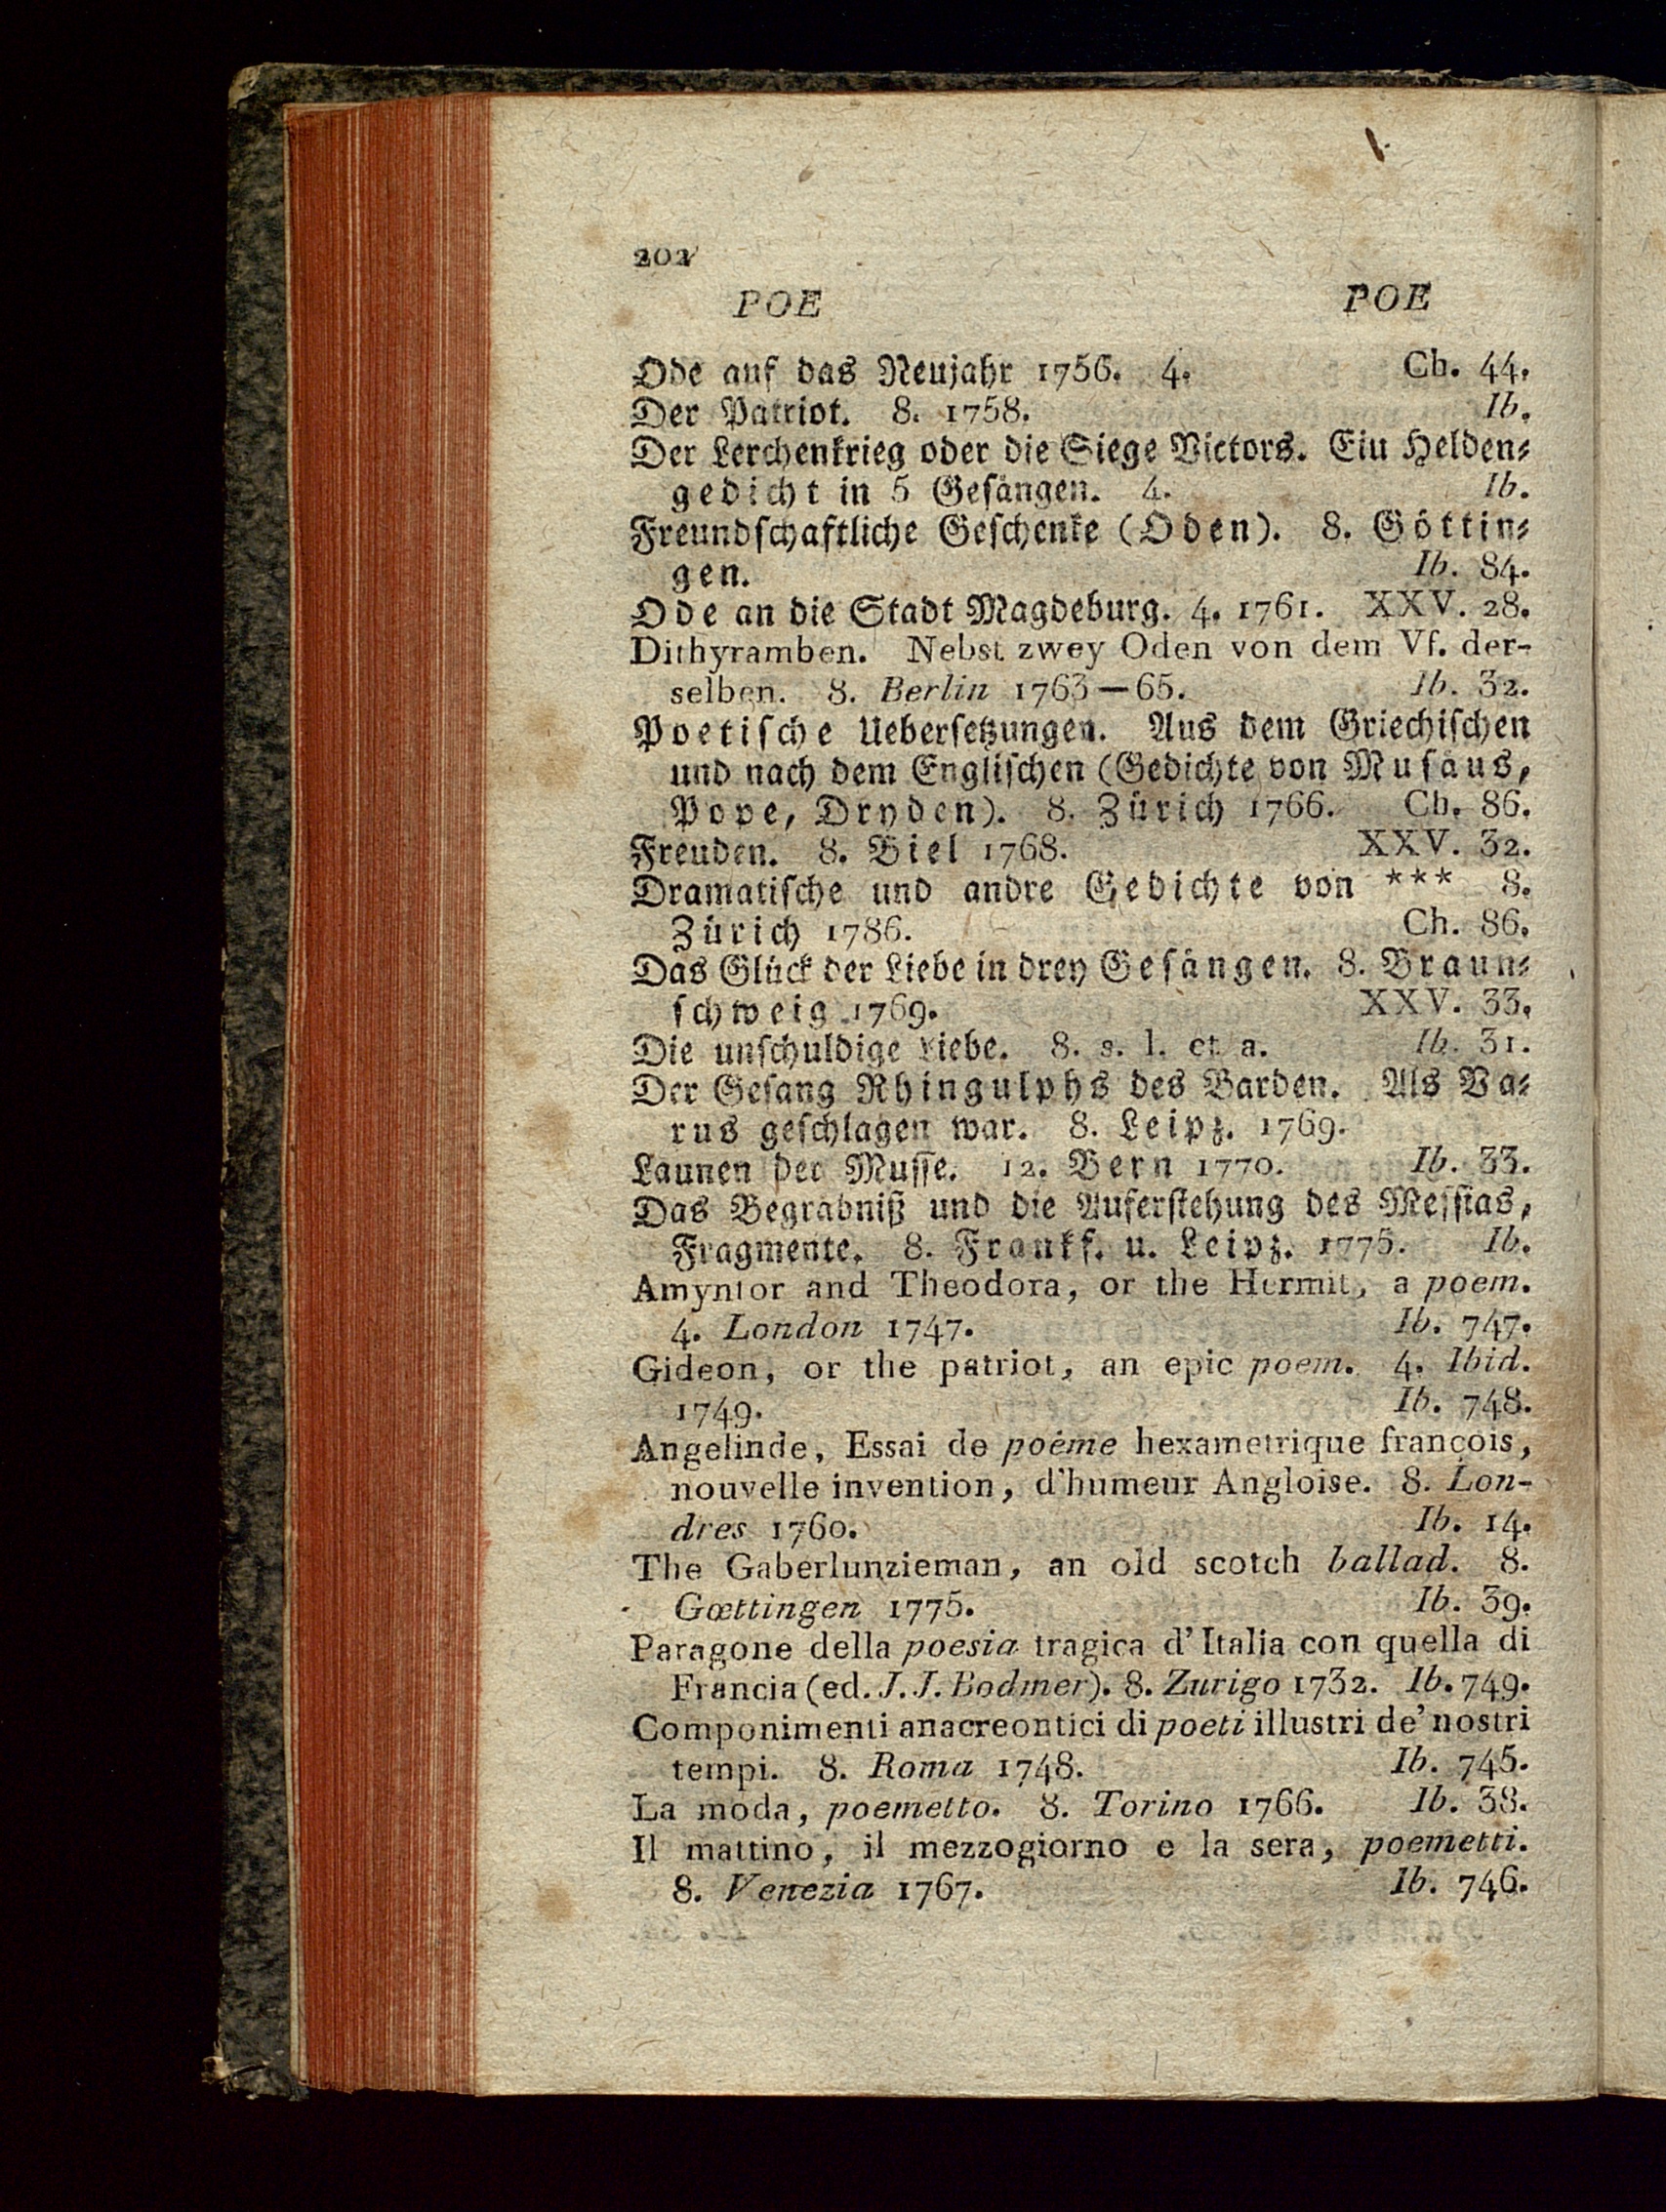 202
POE POE
Ode auf das Neujahr 1756. 4. Ch. 44.
Der Patriot. 8. 1758. Ib.
Der Lerchenkrieg oder die Siege Victors. Eiu Helden-
gedicht in 5 Gesängen. 4. Ib.
Freundschaftliche Geschenke (Oden). 8. Göttin-
gen. Ib. 84.
Ode an die Stadt Magdeburg. 4. 1761. XXV. 28.
Dithyramben. Nebst zwey Oden von dem Vf. der-
selben. 8. Berlin 1763—65. Ib. 32.
Poetische Uebersetzungen. Aus dem Griechischen
und nach dem Englischen (Gedichte von Musäus,
Pope, Dryden). 8. Zürich 1766. Ch. 86.
Freuden. 8. Biel 1768. XXV. 32.
Dramatische und andre Gedichte von *** 8.
Zürich 1786. Ch. 86.
Das Glück der Liebe in drey Gesängen. 8. Braun-
schweig 1769. XXV. 33.
Die unschuldige Liebe. 8. s. l. et a. Ib. 31.
Der Gesang Rhingulphs des Barden. Als Va-
rus geschlagen war. 8. Leipz. 1769.
Launen der Musse. 12. Bern 1770. Ib. 33.
Das Begräbniß und die Auferstehung des Messias,
Fragmente. 8. Frankf. u. Leipz. 1775. Ib.
Amyntor and Theodora, or the Hermit, a poem.
4. London 1747. Ib. 747.
Gideon, or the patriot, an epic poem. 4. Ibid.
1749. Ib. 748.
Angelinde, Essai de poème hexametrique françois,
nouvelle invention, d'humeur Angloise. 8. Lon-
dres 1760. Ib. 14.
The Gaberlunzieman, an old scotch ballad. 8.
Gœttingen 1775. Ib. 39.
Paragone della poesia tragica d'Italia con quella di
Francia (ed. J. J. Bodmer). 8. Zurigo 1732. Ib. 749.
Componimenti anacreontici di poeti illustri de' nostri
tempi. 8. Roma 1748. Ib. 745.
La moda, poemetto. 8. Torino 1766. Ib. 38.
Il mattino, il mezzogiorno e la sera, poemetti.
8. Venezia 1767. Ib. 746.